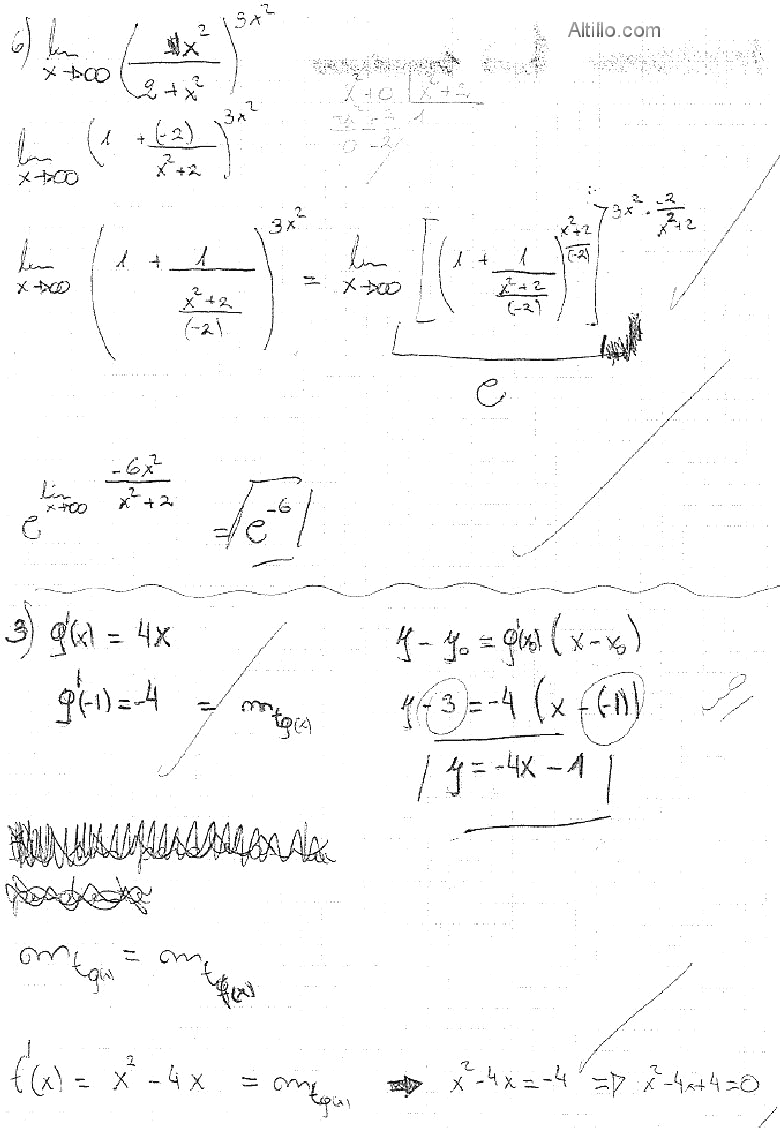 Altillo.com
6) lim x→∞ (1x² / (2+x²))^(3x²)
x²+0 | x²+2
0 -2
lim x→∞ (1 + (-2)/(x²+2))^(3x²)
lim x→∞ (1 + 1/((x²+2)/(-2)))^(3x²) = lim x→∞ [(1 + 1/((x²+2)/(-2)))^((x²+2)/(-2))]^(3x² · -2/(x²+2))
e
e^(lim x→∞ -6x²/(x²+2)) = e^(-6)
3) g'(x) = 4x
g'(-1) = -4 = m tg(x)
y - y₀ = g'(x₀) (x - x₀)
y - 3 = -4 (x - (-1))
y = -4x - 1
m tg(x) = m tf(x)
f'(x) = x² - 4x = m tg(x) ⇒ x² - 4x = -4 ⇒ x² - 4x + 4 = 0